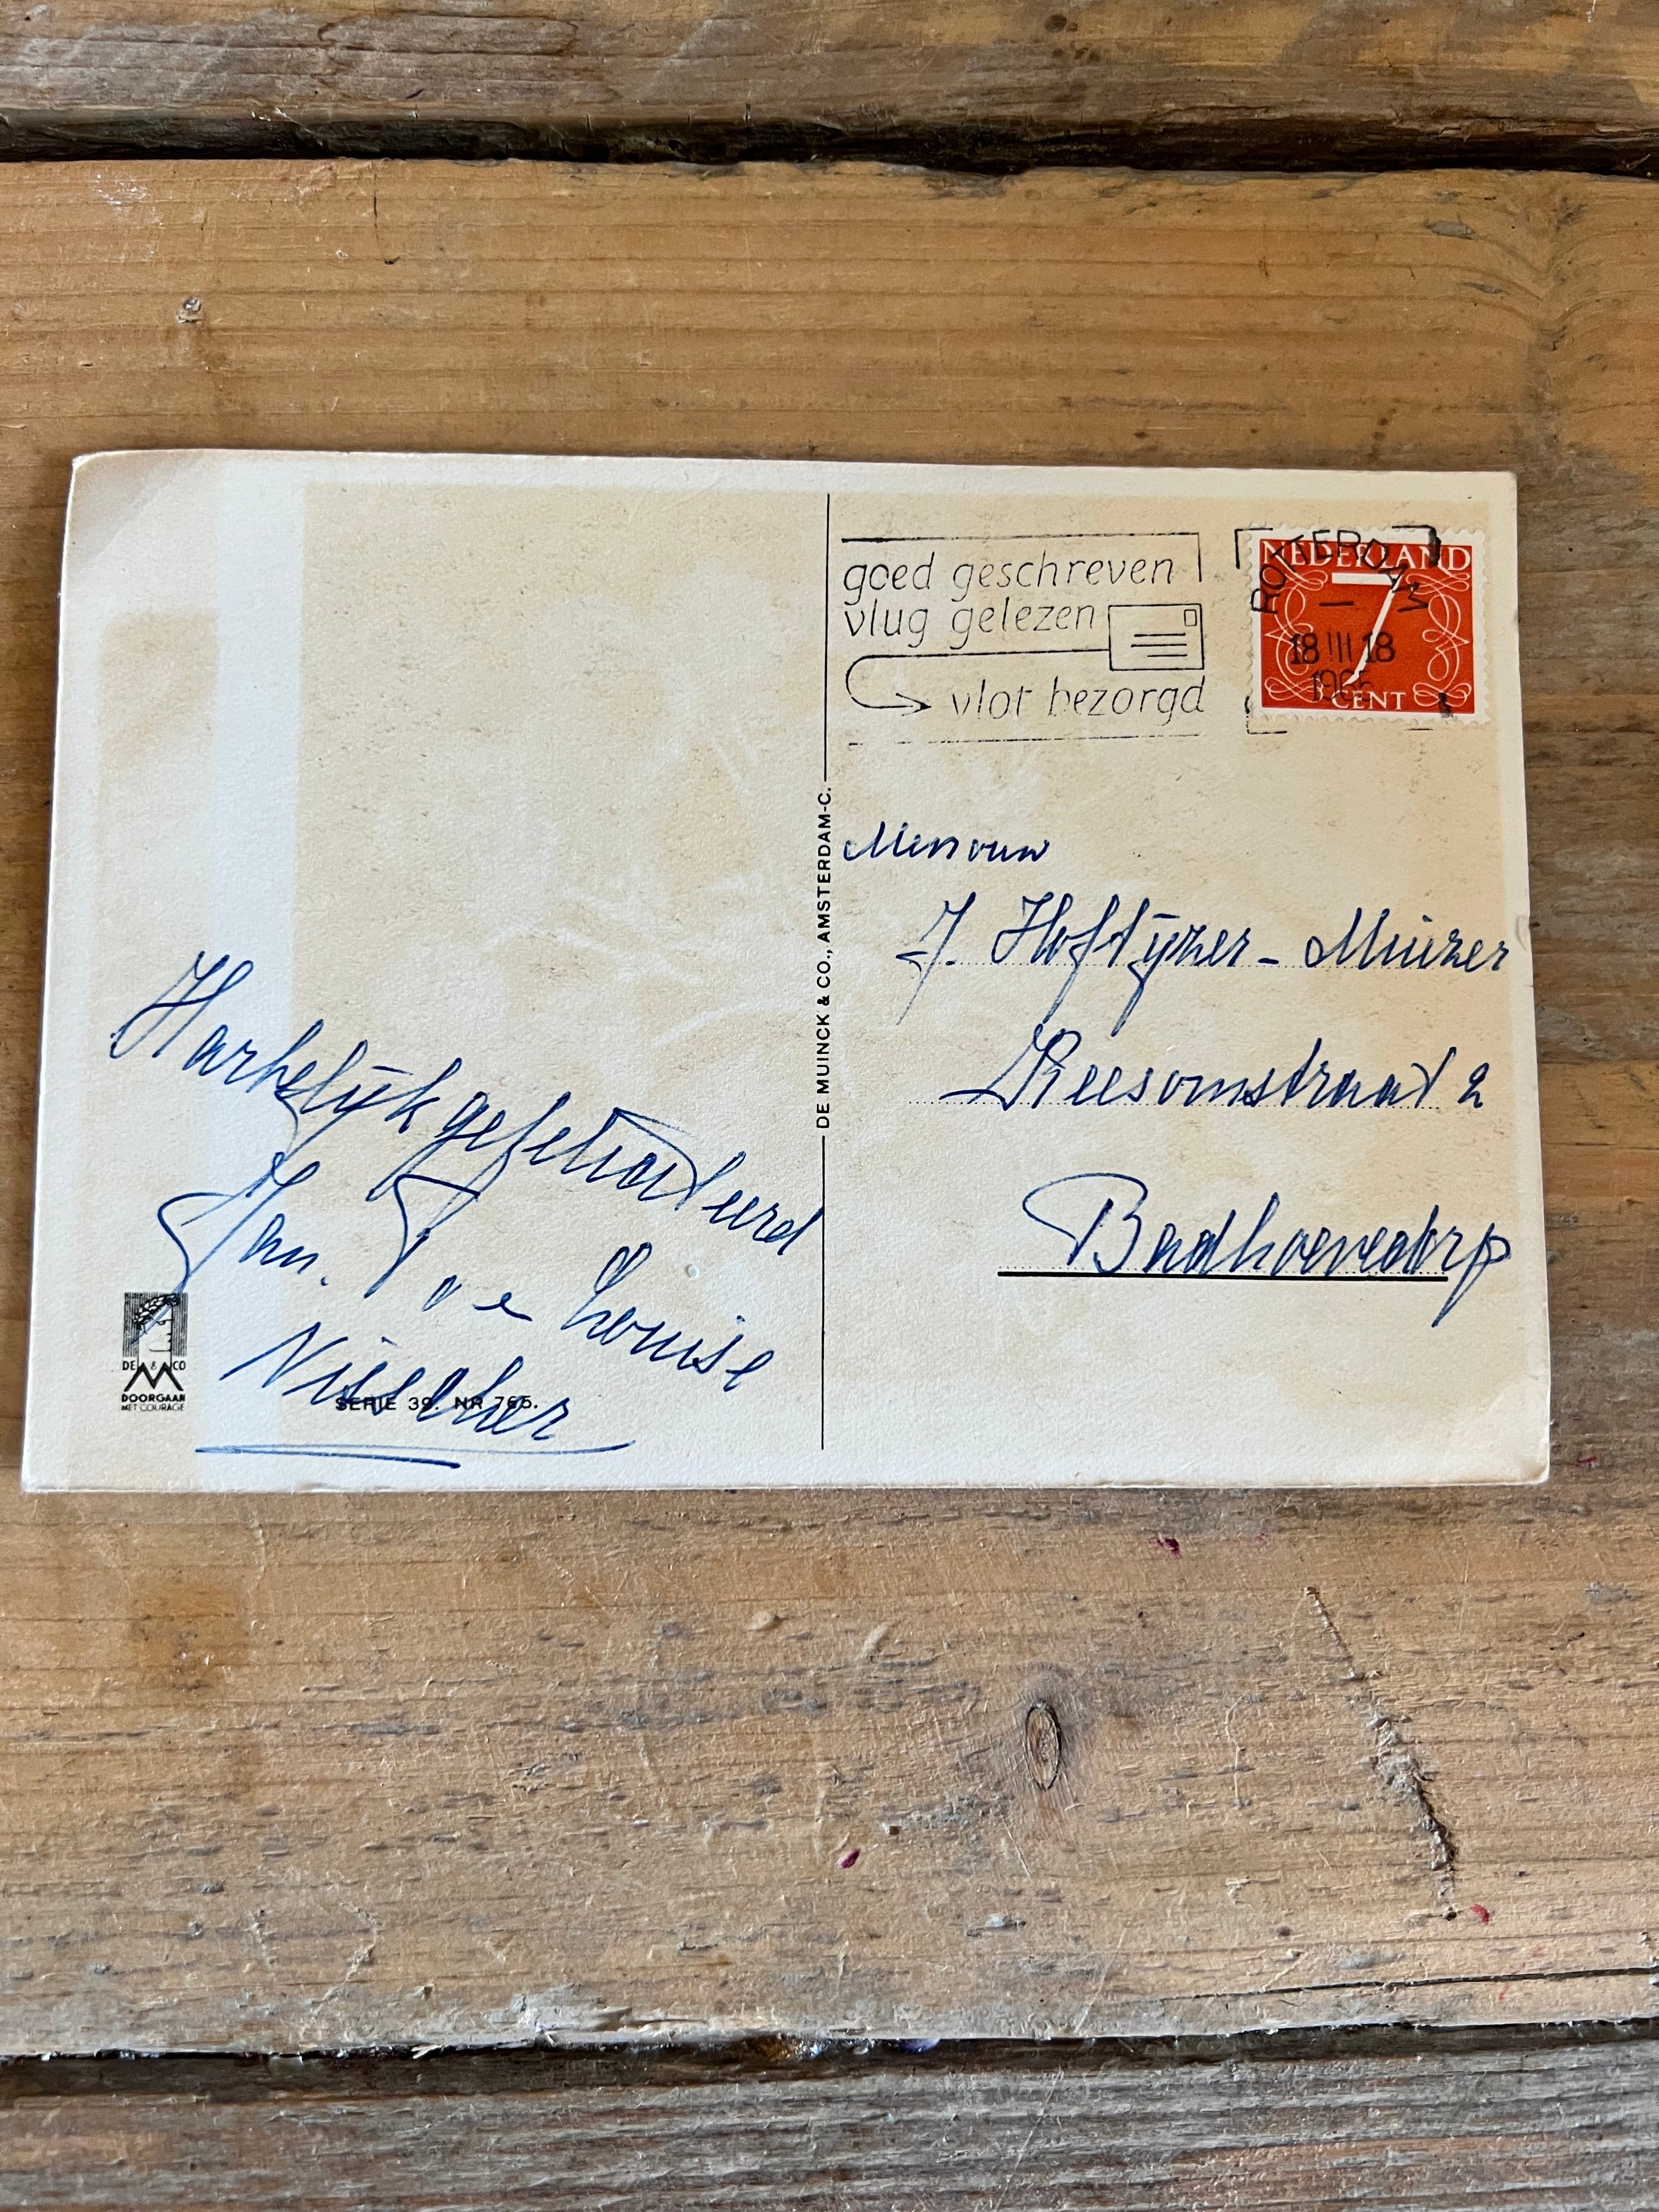 goed geschreven
vlug gelezen
vlot bezorgd
NEDERLAND
7
CENT
ROTTERDAM
18 III 18
1965
DE MUINCK & CO., AMSTERDAM-C.
Mevrouw
J. Hoftijzer - Muizer
Reesomstraat 2
Badhoevedorp
Hartelijk gefeliciteerd
Jan. T v e Louise
Visscher
DE & CO
DOORGAAN
MET COURAGE
SERIE 39. NR 765.